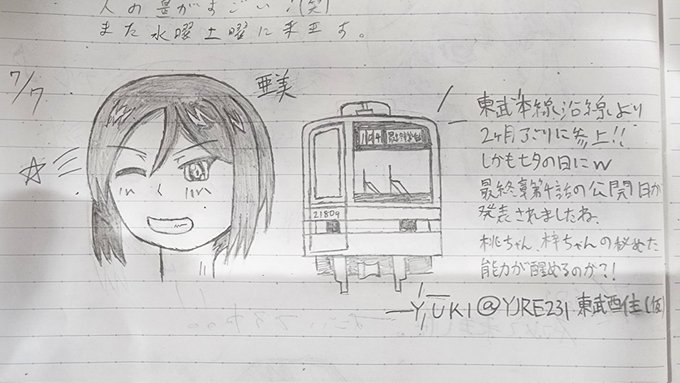 人の量がすごい!(笑)
また水曜土曜に来ます。
7/7
亜美
東武本線沿線より
2ヶ月ブリに参上!!
しかも七夕の日にw
最終章第4話の公開日が
発表されましたね。
桃ちゃん、梓ちゃんの秘めた
能力が醒めるのか?!
YUKI@YJRE231 東武西住(仮)
21809